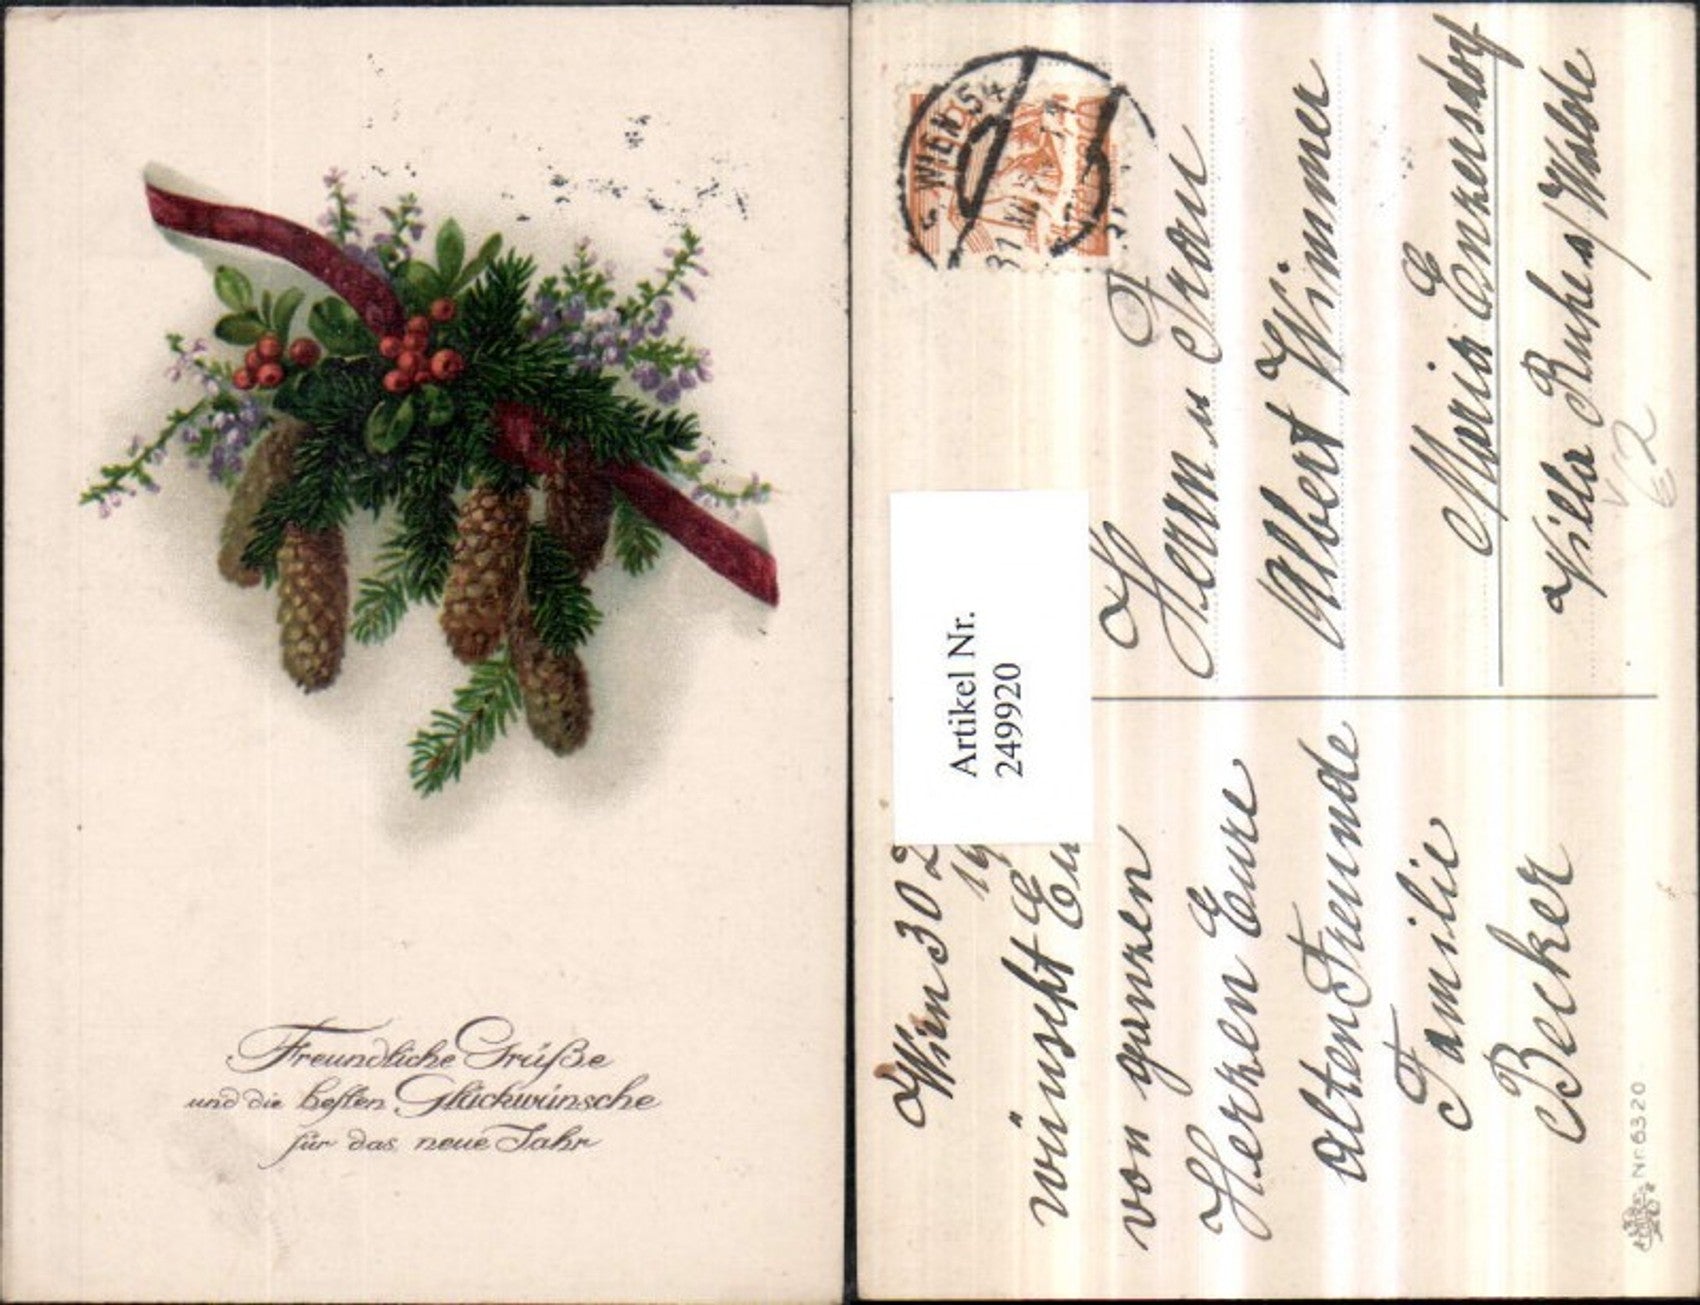 Freundliche Grüße
und die besten Glückwünsche
für das neue Jahr
WIEN 54
Artikel Nr.
249920
Herrn u Frau
Albert Wimmer
Maria Enzersdorf
Villa Ruhe a/Walde
V
62
Wien 30
19
wünscht Eu
von ganzen
Herzen Eure
alten Freunde
Familie
Becker
Nr. 6320